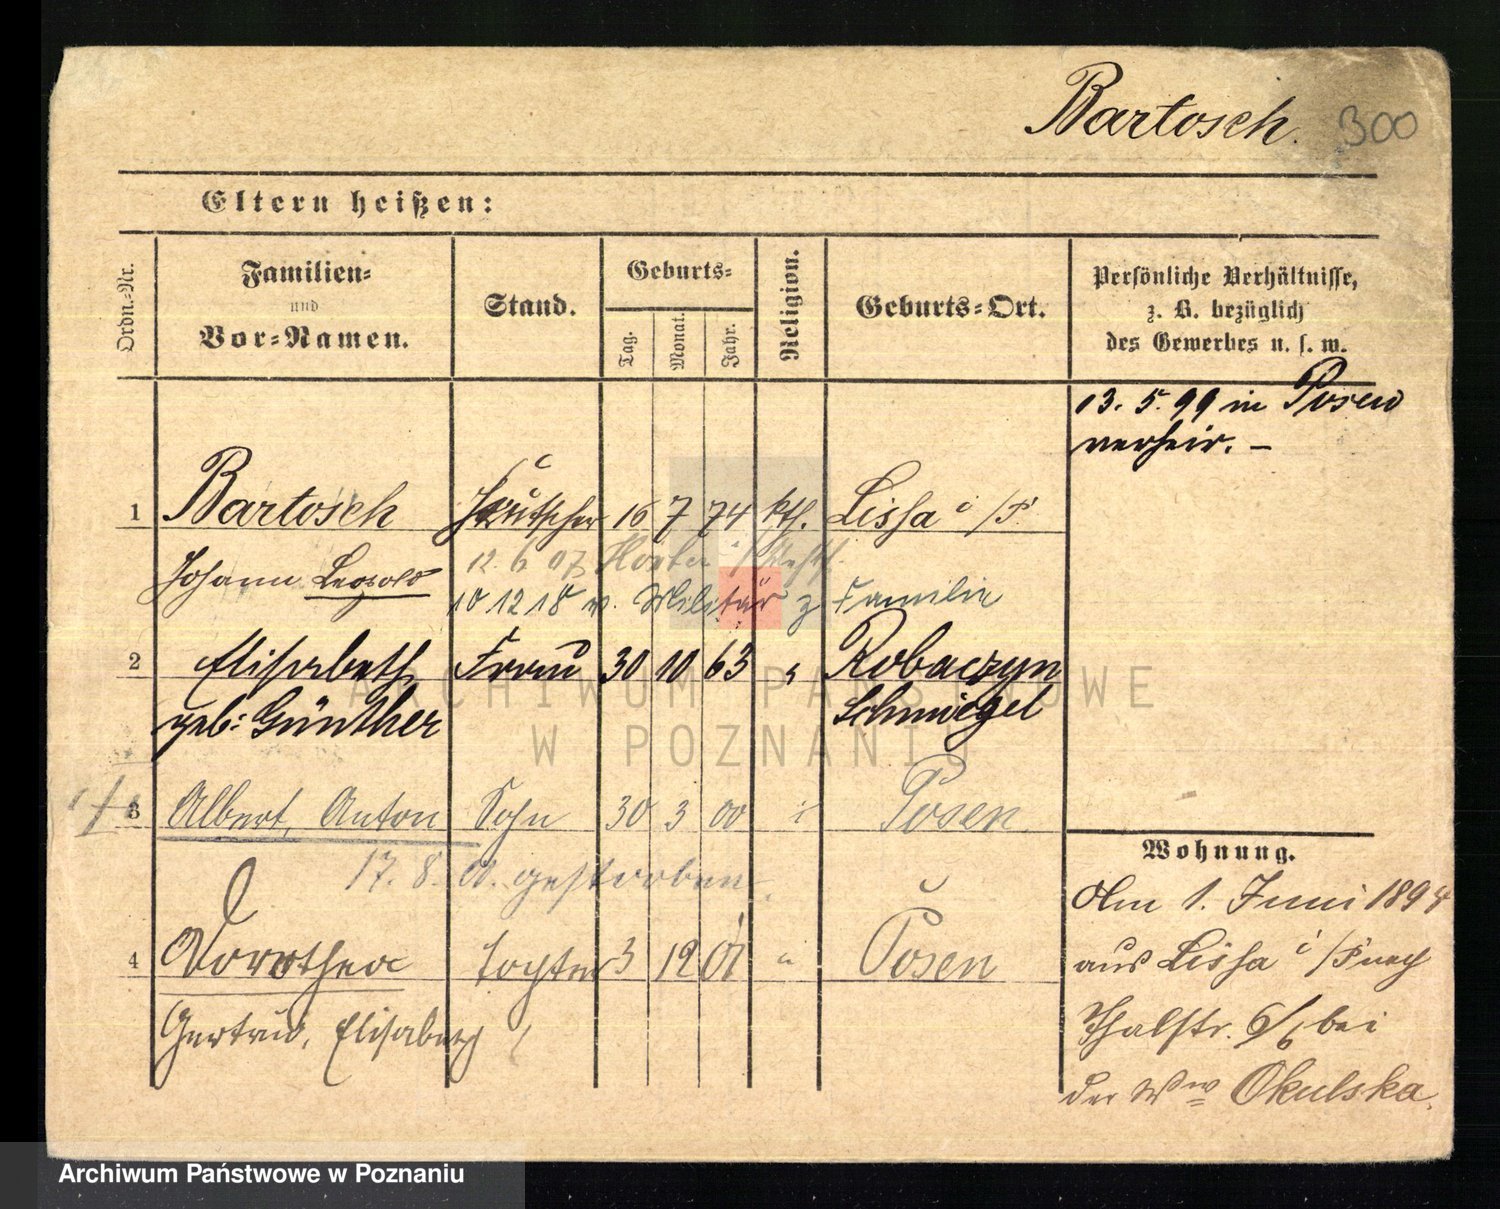 Bartosch. 300
Eltern heißen:
Ordn.-Nr.
Familien-
und
Vor-Namen.
Stand.
Geburts-
Tag.
Monat.
Jahr.
Religion.
Geburts-Ort.
Persönliche Verhältnisse,
z. B. bezüglich
des Gewerbes u. s. w.
13. 5. 99 in Posen
verheir. –
1 Bartosch 16 7 74 kth. Lissa i/P.
Johann Leopold
12. 6 07
10 12 18 v. Militär z Familie
2 Elisabeth Frau 30 10 63 " Robaczyn
geb: Günther Schmiegel
3 Albert, Anton Sohn 30 3 00 Posen
17. 8. gestorben
4 Dorothea Tochter 3 12 01 " Posen
Gertrud, Elisabeth
Wohnung.
Am 1. Juni 1894
aus Lissa i/P nach
Thalstr. 6/ bei
der Ww Okulska.
ARCHIWUM PAŃSTWOWE
W POZNANIU
Archiwum Państwowe w Poznaniu